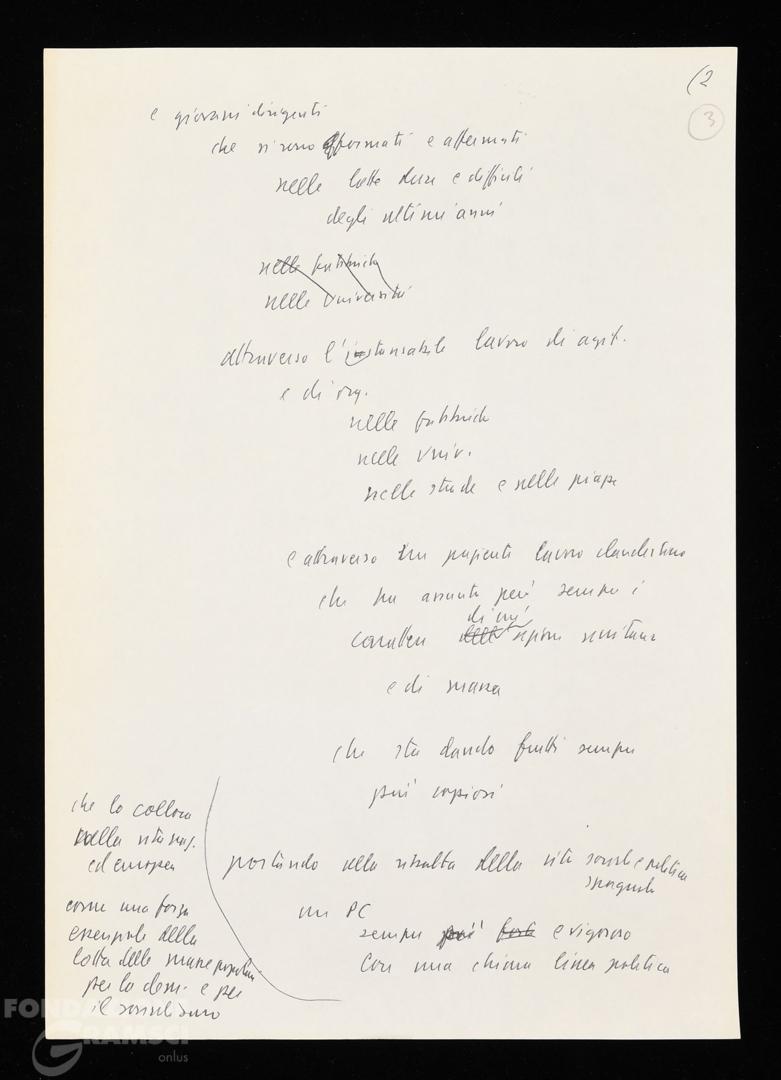 (2
3
e giovani dirigenti
che si sono formati e affermati
nelle lotte dure e difficili
degli ultimi anni
nelle fabbriche
nelle Università
attraverso l' lavoro di agit.
e di org.
nelle fabbriche
nelle Univ.
nelle strade e nelle piazze
e attraverso un paziente lavoro clandestino
che ha assunto però sempre i
di un'
caratteri dell' azione unitaria
e di massa
che sta dando frutti sempre
più copiosi
portando alla ribalta della vita sociale e politica
spagnola
un PC
sempre più forte e vigoroso
con una chiara linea politica
che lo colloca
nella vita naz.
ed europea
come una forza
essenziale della
lotta delle masse popolari
per la dem. e per
il socialismo
FONDAZIONE
GRAMSCI
onlus